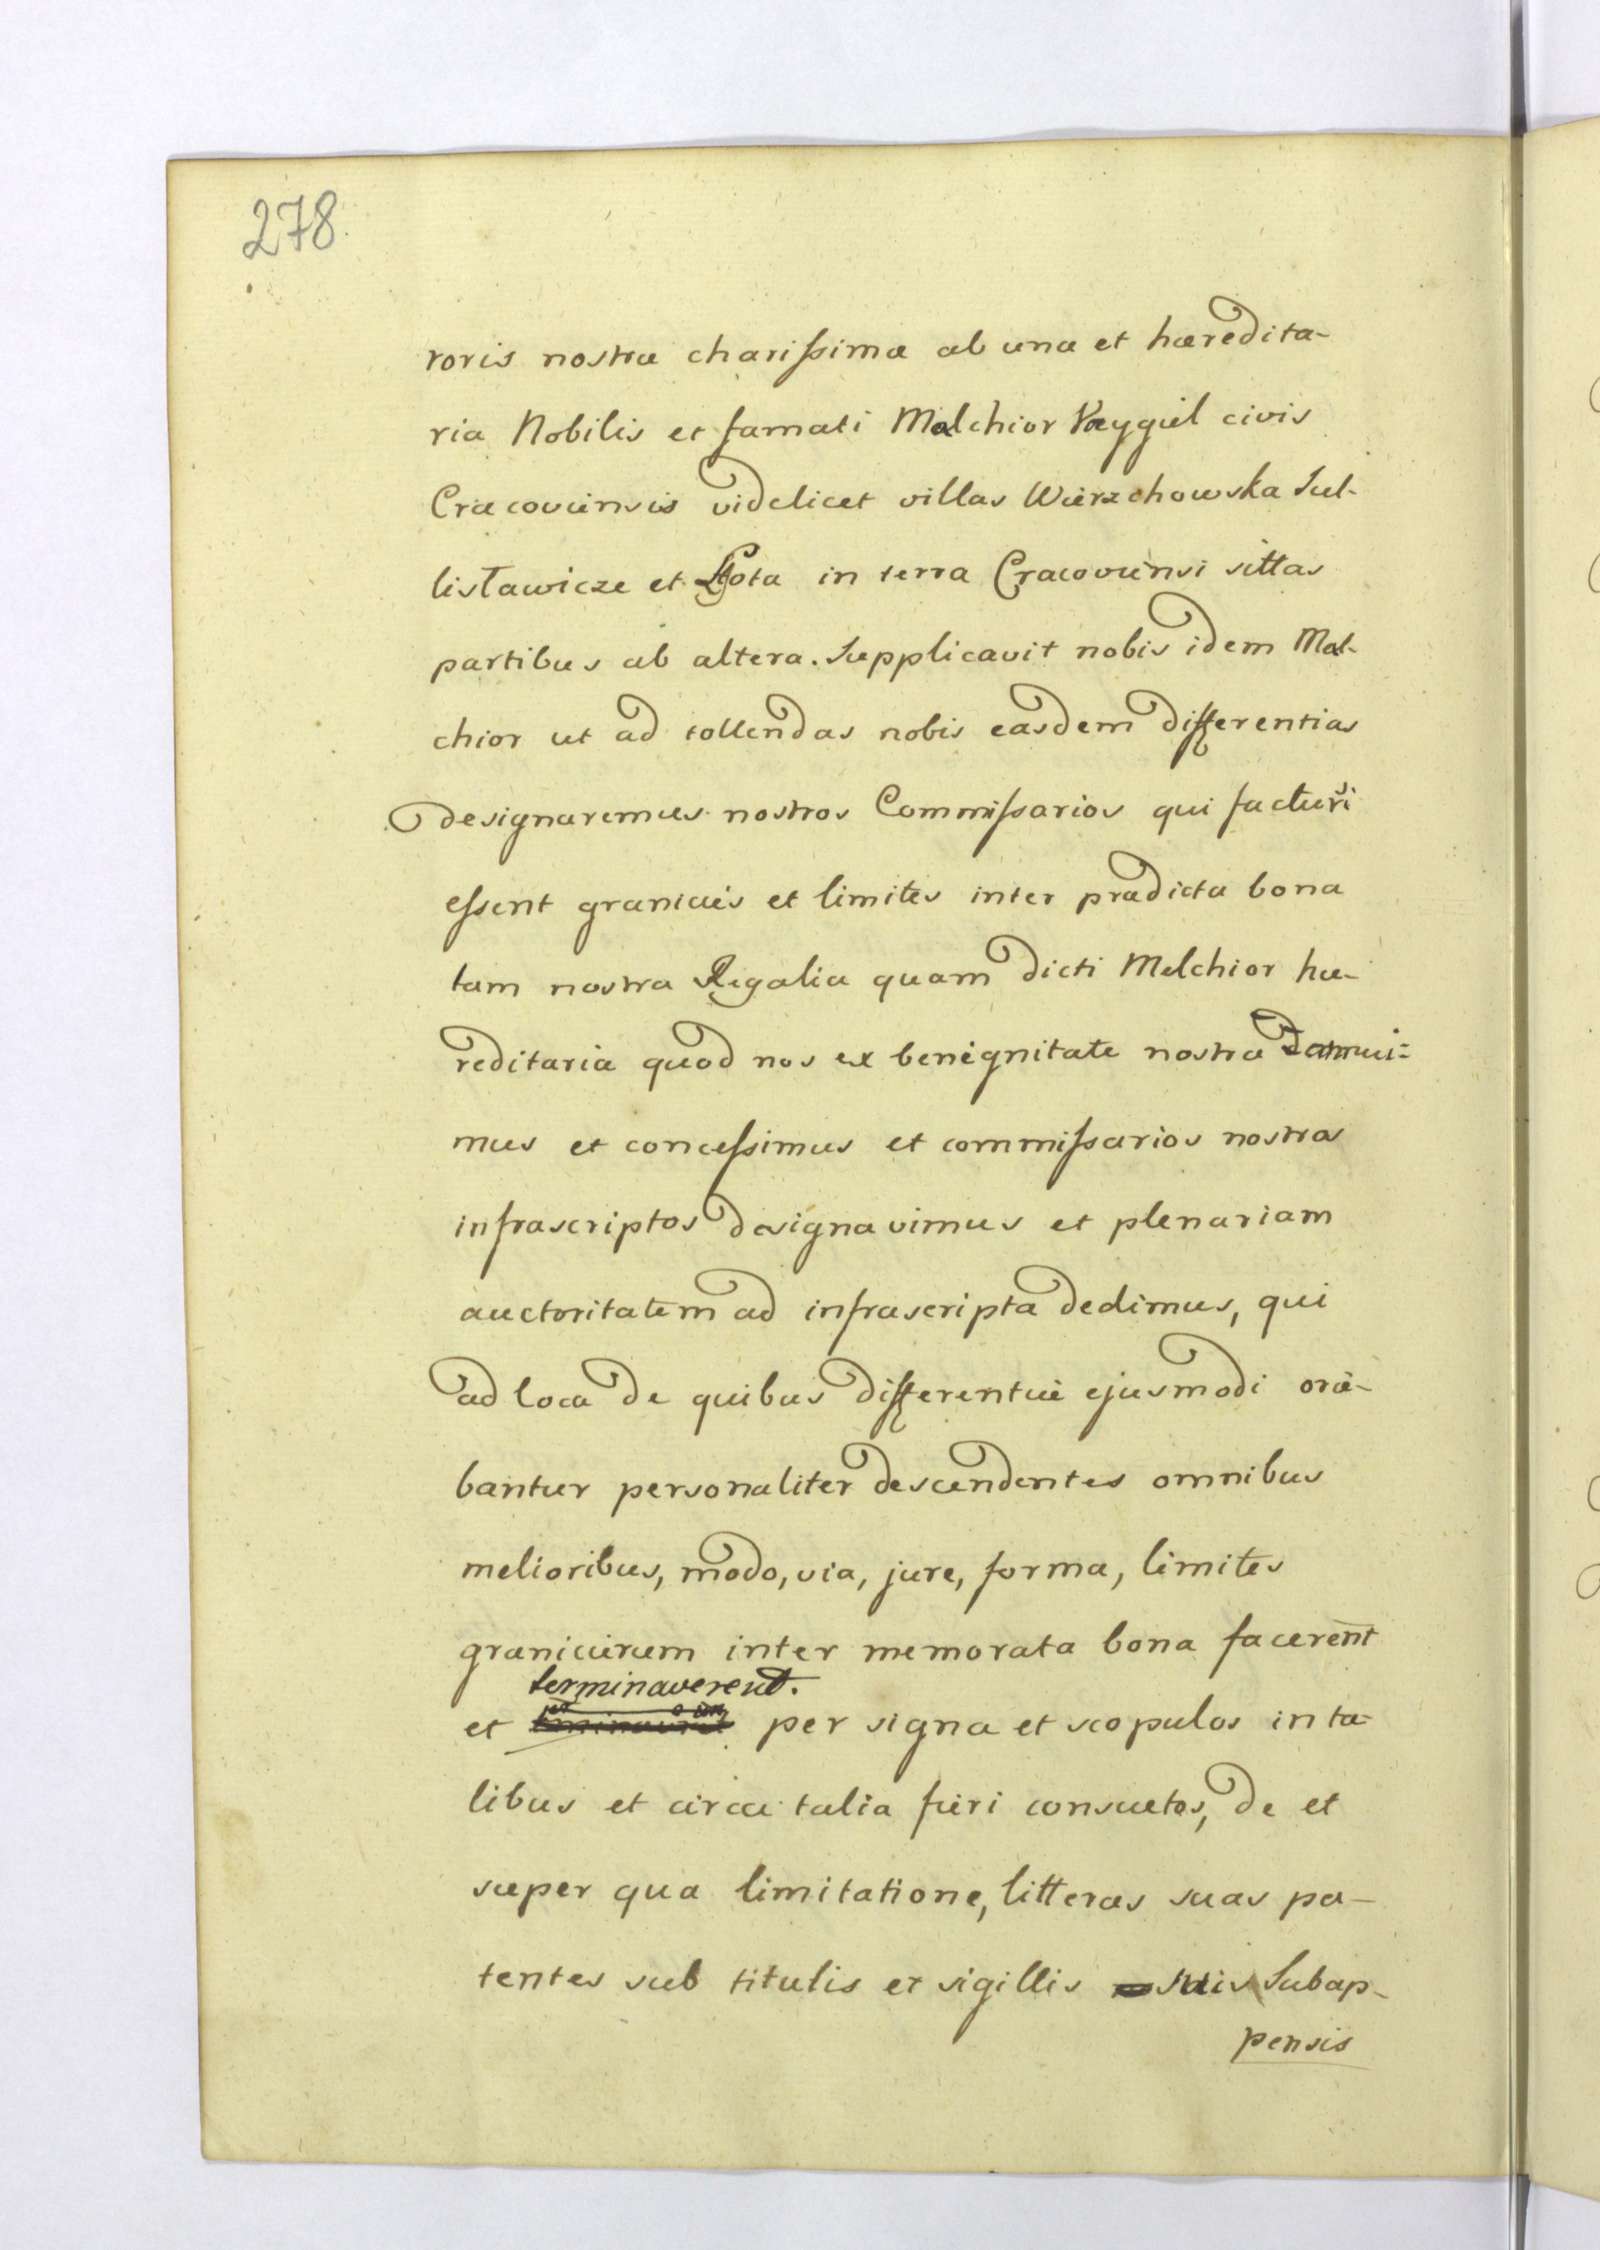 278
roris nostræ charissimæ ab una et hæredita-
ria Nobilis et famati Melchior Weygiel civis
Cracoviensis videlicet villas Wierzchowska Sul-
listawicze et Lgota in terra Cracoviensi sittas
partibus ab altera. Supplicavit nobis idem Mel-
chior ut ad tollendas nobis easdem differentias
designaremus nostros Commissarios qui facturi
essent granicies et limites inter prædicta bona
tam nostra Regalia quam dicti Melchior hæ-
reditaria quod nos ex benignitate nostra
mus et concessimus et commissarios nostros
infrascriptos designavimus et plenariam
auctoritatem ad infrascripta dedimus, qui
ad loca de quibus differentiæ ejusmodi orie-
bantur personaliter descendentes omnibus
melioribus, modo, via, jure, forma, limites
granicierum inter memorata bona facerent
terminaverent.
et per signa et scopulos in ta-
libus et circa talia fieri consuetos, de et
super qua limitatione, litteras suas pa-
tentes sub titulis et sigillis suis Subap-
pensis